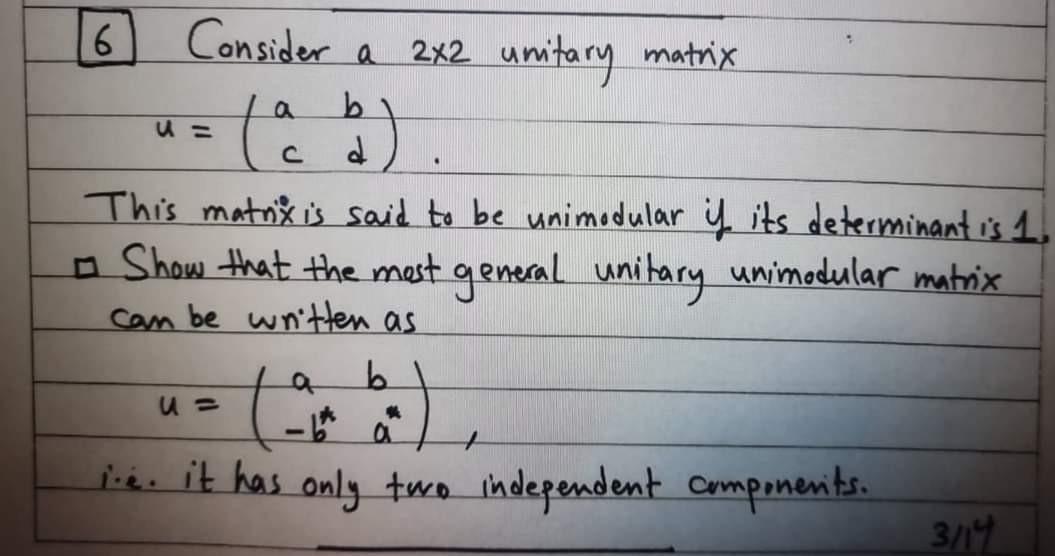 6 Consider a 2x2 unitary matrix
u = ( a b
c d ) .
This matrix is said to be unimodular if its determinant is 1.
□ Show that the most general unitary unimodular matrix
can be written as
u = ( a b
-b* a* ) ,
i.e. it has only two independent components.
3/14